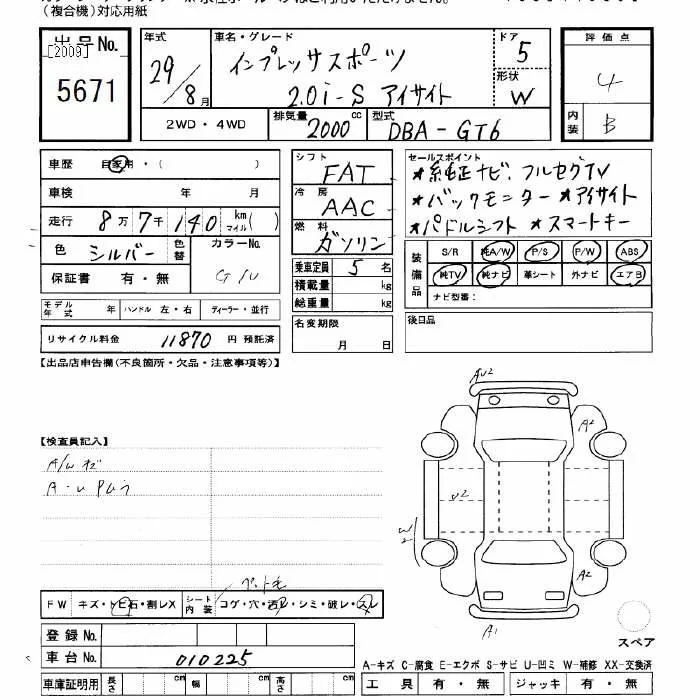 (複合機)対応用紙
出品No.
[2009]
5671
年式
29/8月
車名・グレード
インプレッサスポーツ
2.0i-S アイサイト
ドア
5
形状
W
評価点
4
内装
B
2WD・4WD
排気量
2000cc
型式
DBA-GT6
車歴 自家用・( )
車検 年 月
走行 8万7千140km マイル( )
色 シルバー 色替 カラーNo. G1U
保証書 有・無
モデル年式 年 ハンドル 左・右 ディーラー・並行
リサイクル料金 11870 円 預託済
シフト
FAT
冷房
AAC
燃料
ガソリン
乗車定員 5 名
積載量 kg
総重量 kg
名変期限
月 日
セールスポイント
★純正ナビ.フルセグTV
★バックモニター ★アイサイト
★パドルシフト ★スマートキー
装備品
S/R 純A/W P/S P/W ABS
純TV 純ナビ 革シート 外ナビ エアB
ナビ型番:
後日品
【出品店申告欄(不良箇所・欠品・注意事項等)】
【検査員記入】
A/W キズ
A・U
AU2
A2
U2
W2
A2
A1
スペア
ペット毛
FW キズ・トビ石・割レX シート内装 コゲ・穴・汚レ・シミ・破レ・スレ
登録No.
車台No. 010225
車庫証明用 長さ cm 幅 cm 高さ cm
A-キズ C-腐食 E-エクボ S-サビ U-凹ミ W-補修 XX-交換済
工具 有・無 ジャッキ 有・無